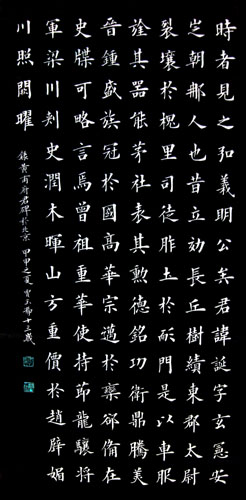 時者見之弘義明公矣君諱誕字玄憲安
定朝那人也昔立功長丘樹績東郡太尉
裂壤於槐里司徒胙土於耏門是以車服
詮其器能茅社表其勳德銘功衛鼎騰美
晉鍾盛族冠於國高華宗邁於欒郤備在
史牒可略言焉曾祖重華使持節龍驤將
軍梁川刺史潤木暉山方重價於趙璧媚
川照闕曜
錄黃甫府君碑於北京甲申之夏